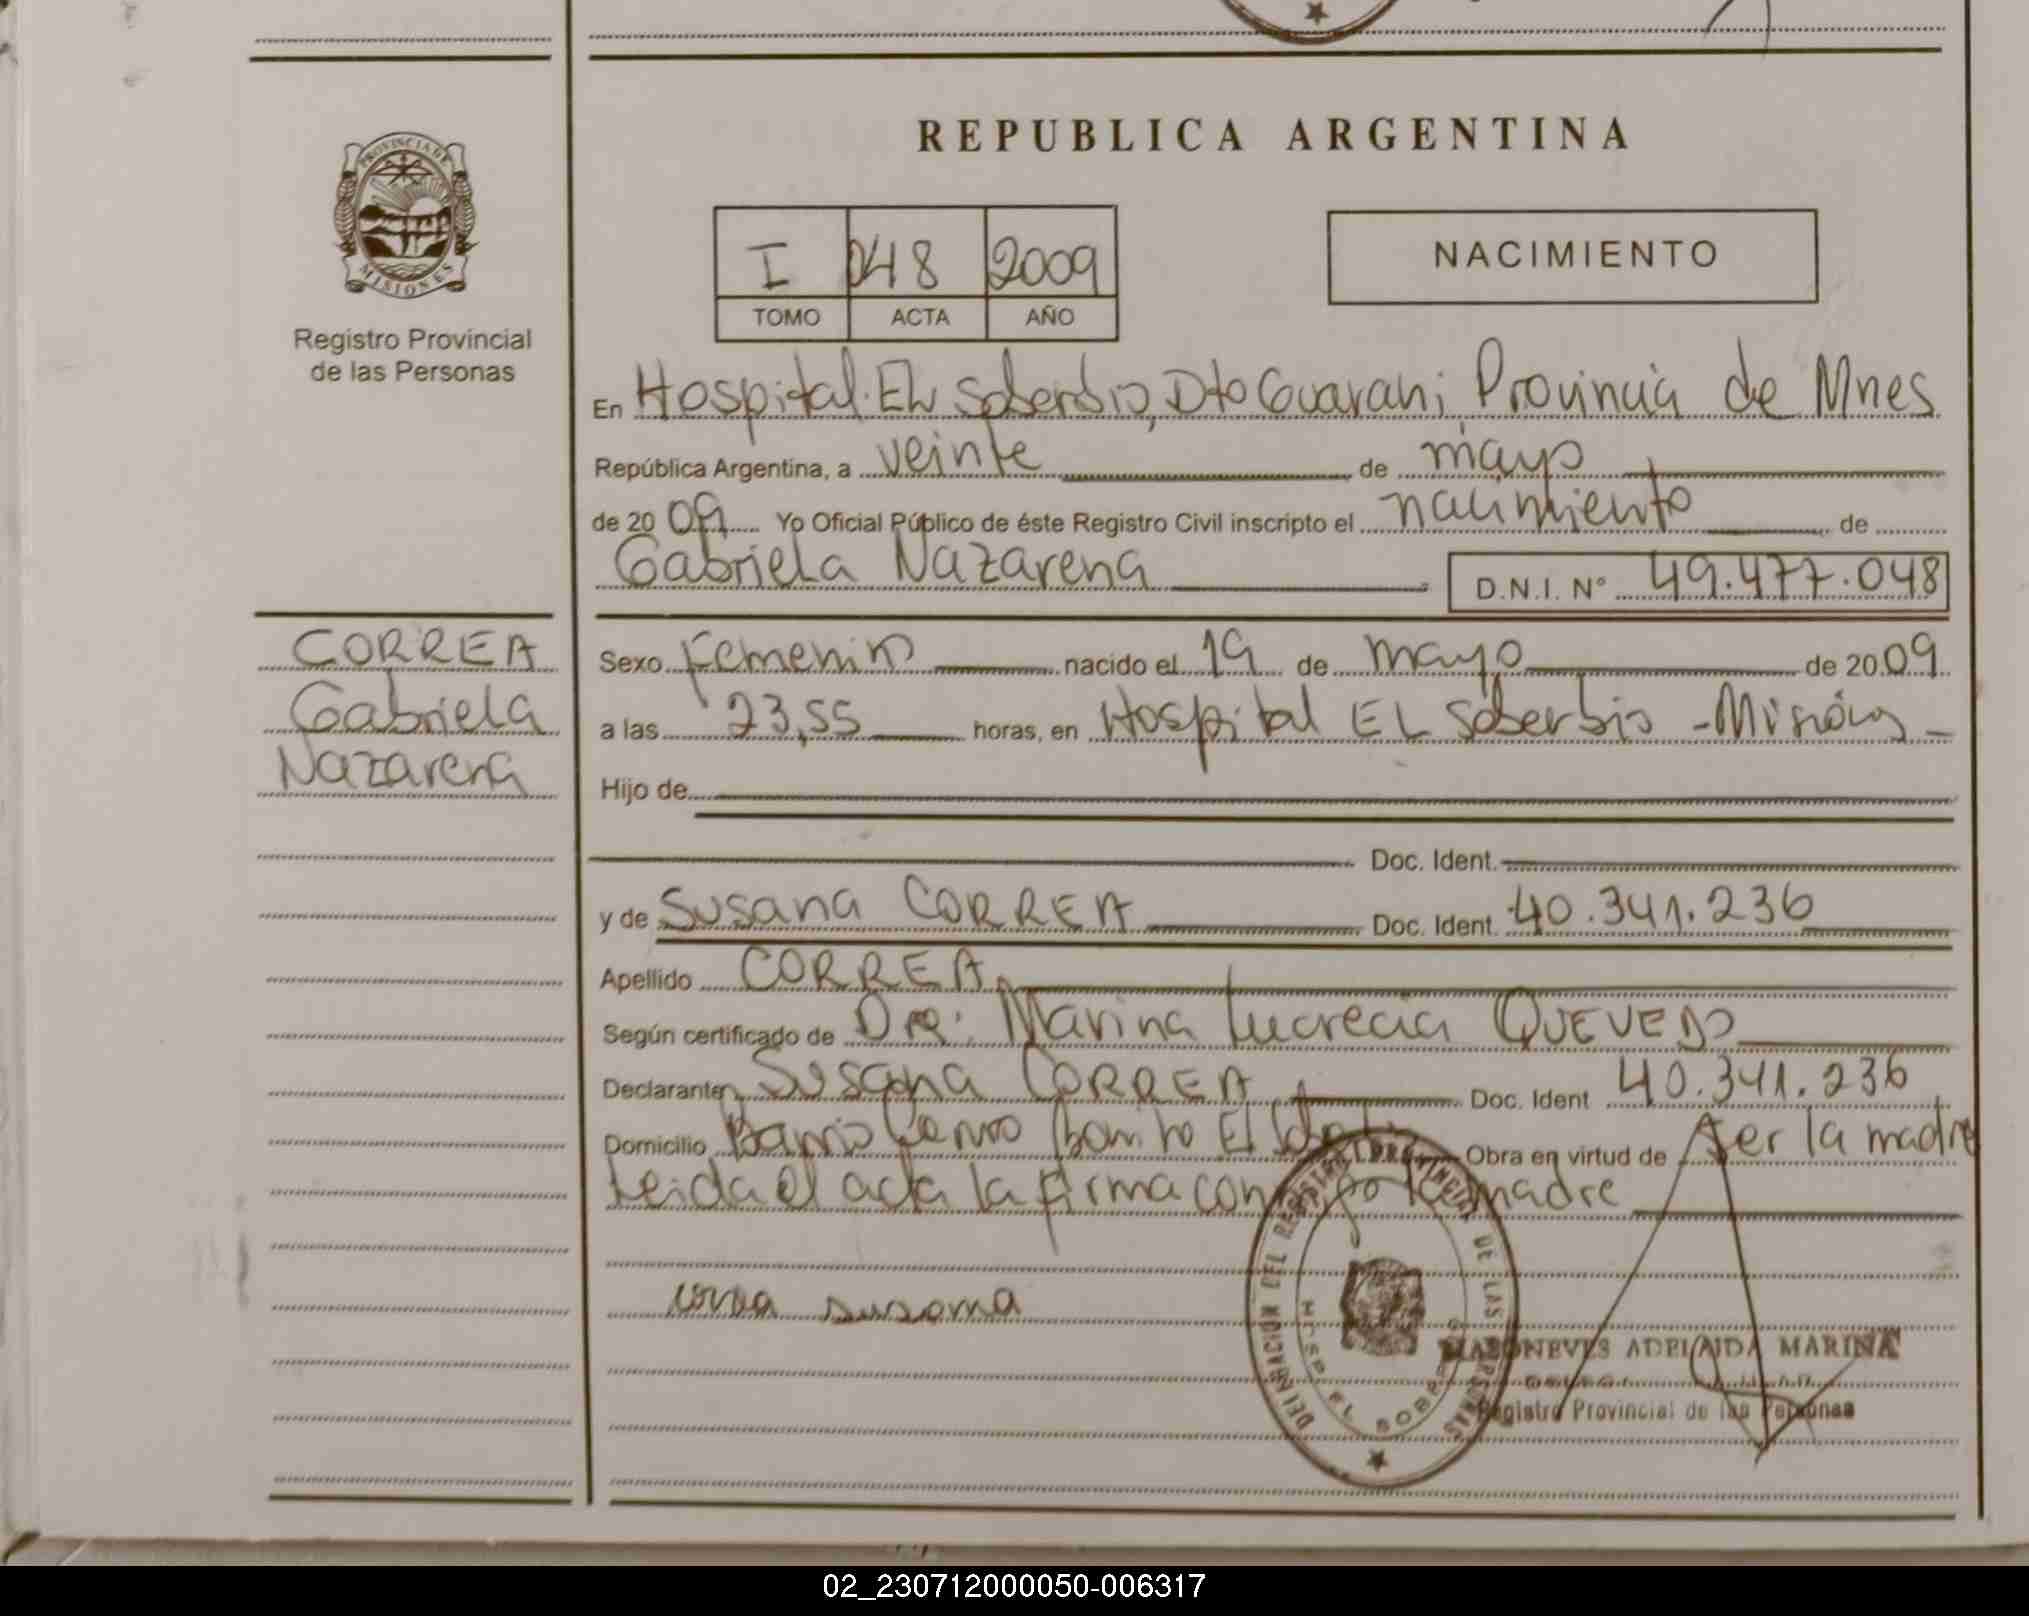 REPUBLICA ARGENTINA
PROVINCIA DE
MISIONES
Registro Provincial
de las Personas
I 048 2009
TOMO ACTA AÑO
NACIMIENTO
En Hospital El Soberbio, Dto Guarani Provincia de Mnes
República Argentina, a veinte de mayo
de 2009 Yo Oficial Público de éste Registro Civil inscripto el nacimiento de
Gabriela Nazarena D.N.I. N° 49.477.048
CORREA
Gabriela
Nazarena
Sexo Femenino nacido el 19 de mayo de 2009
a las 23,55 horas, en Hospital EL Soberbio - Misiones -
Hijo de
Doc. Ident.
y de Susana CORREA Doc. Ident. 40.341.236
Apellido CORREA
Según certificado de Dra: Marina Lucrecia QUEVEDO
Declarante Susana CORREA Doc. Ident 40.341.236
Domicilio Barrio Cerro Bonito El Obra en virtud de Ser la madre
Leida el acta la firma la madre
correa susana
DELEGACION DEL REGISTRO PROVINCIAL DE LAS PERSONAS
ADELAIDA MARINA
Registro Provincial de las Personas
02_230712000050-006317